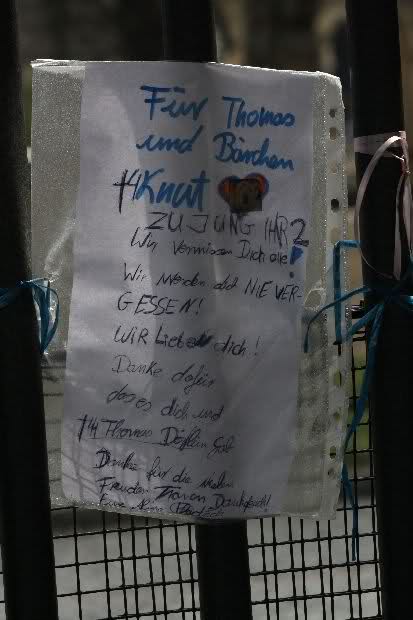 Für Thomas
und Bärchen
Knut
ZU JUNG IHR 2
Wir vermissen Dich alle!
Wir werden dich NIE VER-
GESSEN!
WIR Lieben dich!
Danke dafür
das es dich und
Thomas Dörflein gab
Danke für die vielen
Freuden Tränen
Eure